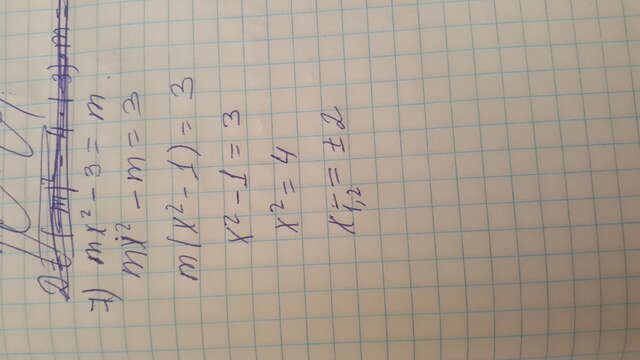 D = (-m)² - 4 · (-3) · m =
7) mx² - 3 = m
mx² - m = 3
m(x² - 1) = 3
x² - 1 = 3
x² = 4
x₁,₂ = ±2